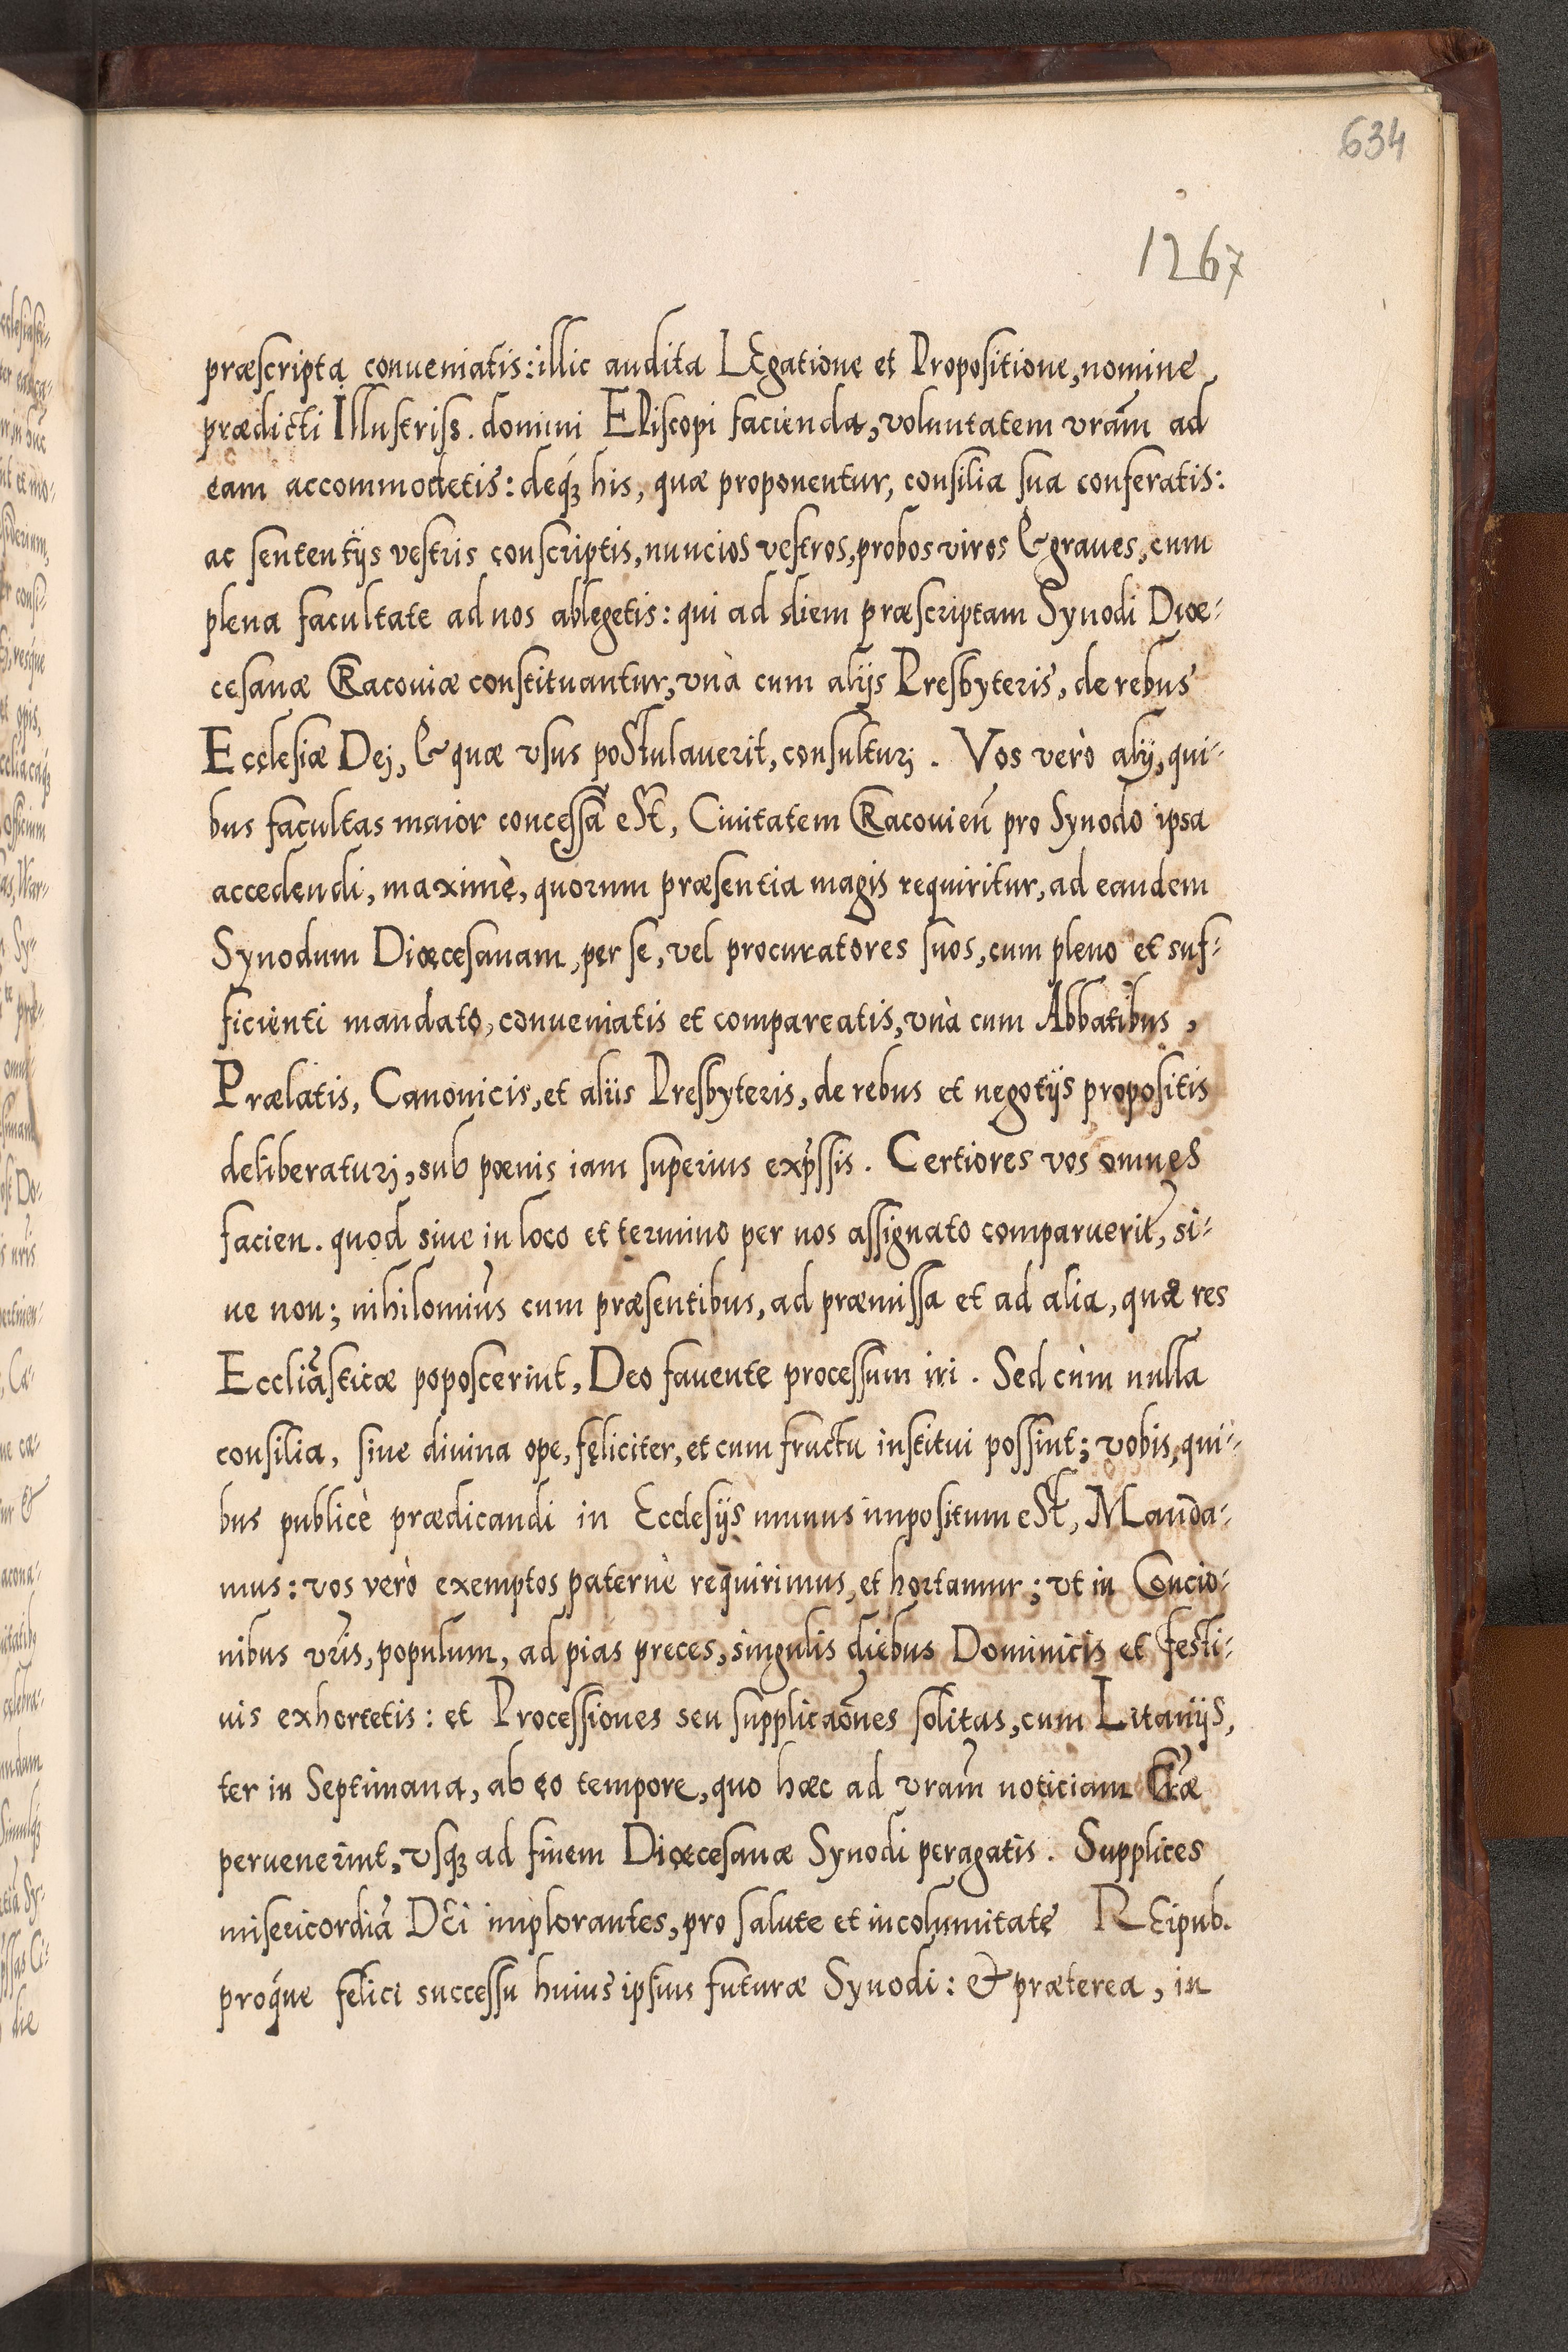 634
1267
præscripta conueniatis: illic audita LEgatione et Propositione, nomine
prædicti Illustriss. domini EPiscopi facienda, voluntatem vram̃ ad
eam accommodetis: deq́ꝫ his, quæ proponentur, consilia sua conferatis:
ac sententijs vestris conscriptis, nuncios vestros, probos viros & graues, cum
plena facultate ad nos ablegetis: qui ad diem præscriptam Synodi Diœ-
cesanæ CRacouiæ constituantur, vnà cum alijs Presbyteris, de rebus
Ecclesiæ Dej, & quæ vsus postulauerit, consulturj. Vos verò alij, qui-
bus facultas maior concessa est, Ciuitatem CRacouień pro Synodo ipsa
accedendi, maximè, quorum præsentia magis requiritur, ad eandem
Synodum Diœcesanam, per se, vel procuratores suos, cum pleno et suf-
ficienti mandato, conueniatis et compareatis, vnà cum Abbatibus,
Prælatis, Canonicis, et aliis Presbyteris, de rebus et negotijs propositis
deliberaturj, sub pœnis iam superius exp̃ssis. Certiores vos omnes
facien. quod siue in loco et termino per nos assignato comparuerit̃, si-
ue non; nihilomin̾s cum præsentibus, ad præmissa et ad alia, quæ res
Eccliãsticæ poposcerint, Deo fauente processum iri. Sed cùm nulla
consilia, sine diuina ope, feliciter, et cum fructu institui possint; vobis, qui-
bus publicè prædicandi in Ecclesijs munus impositum est, Manda-
mus: vos verò exemptos paternè requirimus, et hortamur; vt in Concio-
nibus vrĩs, populum, ad pias preces, singulis diebus Dominicis et festi-
uis exhortetis: et Processiones seu supplicaões solitas, cum Litanijs,
ter in Septimana, ab eo tempore, quo hæc ad vram̃ noticiam lræ̃
peruenerint, vsqꝫ ad finem Diœcesanæ Synodi peragatis. Supplices
misericordiã DEi implorantes, pro salute et incolumitate REipub.
proq́ue felici successu huius ipsius futuræ Synodi: & præterea, in